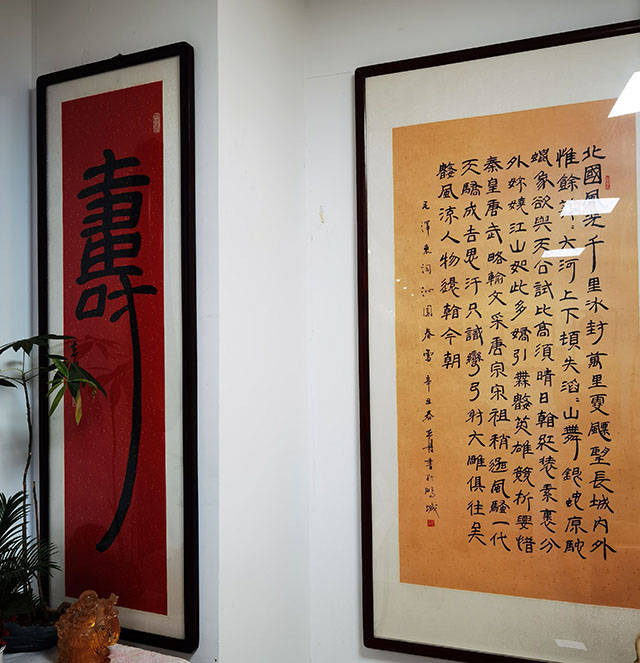 北國風光千里冰封萬里雪飄望長城內外
惟餘莽〻大河上下頓失滔〻山舞銀蛇原馳
蠟象欲與天公試比高須晴日看紅裝素裹分
外妖嬈江山如此多嬌引無數英雄競折腰惜
秦皇漢武略輸文采唐宗宋祖稍遜風騷一代
天驕成吉思汗只識彎弓射大雕俱往矣
數風流人物還看今朝
毛澤東詞沁園春雪 辛丑春 書於鵬城
壽